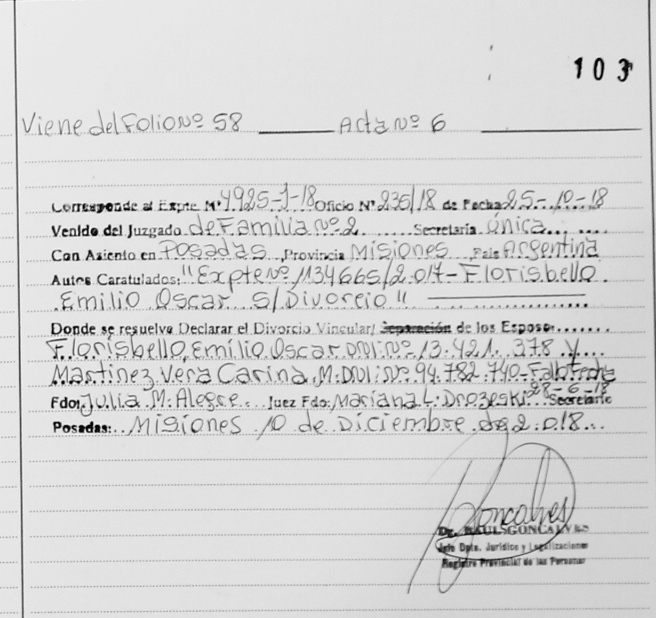 103
Viene del Folio Nº 58 ______ Acta Nº 6 ______
Corresponde al Expte Nº 4925-J-18 Oficio Nº 235/18 de Fecha 25-10-18
Venido del Juzgado de Familia Nº 2 ...... Secretaria única......
Con Asiento en Posadas, Provincia Misiones Pais Argentina
Autos Caratulados: "Expte Nº 134665/2.017- Florisbello
Emilio Oscar S/Divorcio"
Donde se resuelve Declarar el Divorcio Vincular/ Separación de los Esposos.......
Florisbello, Emilio Oscar DNI: Nº 13.421.378 y...
Martinez Vera Carina, M. DNI: Nº 94.782.740- Fallo Fecha
28-6-18
Fdo: Julia M. Alegre. Juez Fdo: Mariana L. Drozeski. Secretario
Posadas:.. Misiones 10 de Diciembre de 2.018...
Goncalves
Dr. RAUL S GONCALVES
Jefe Dpto. Jurídico y Legalizaciones
Registro Provincial de las Personas